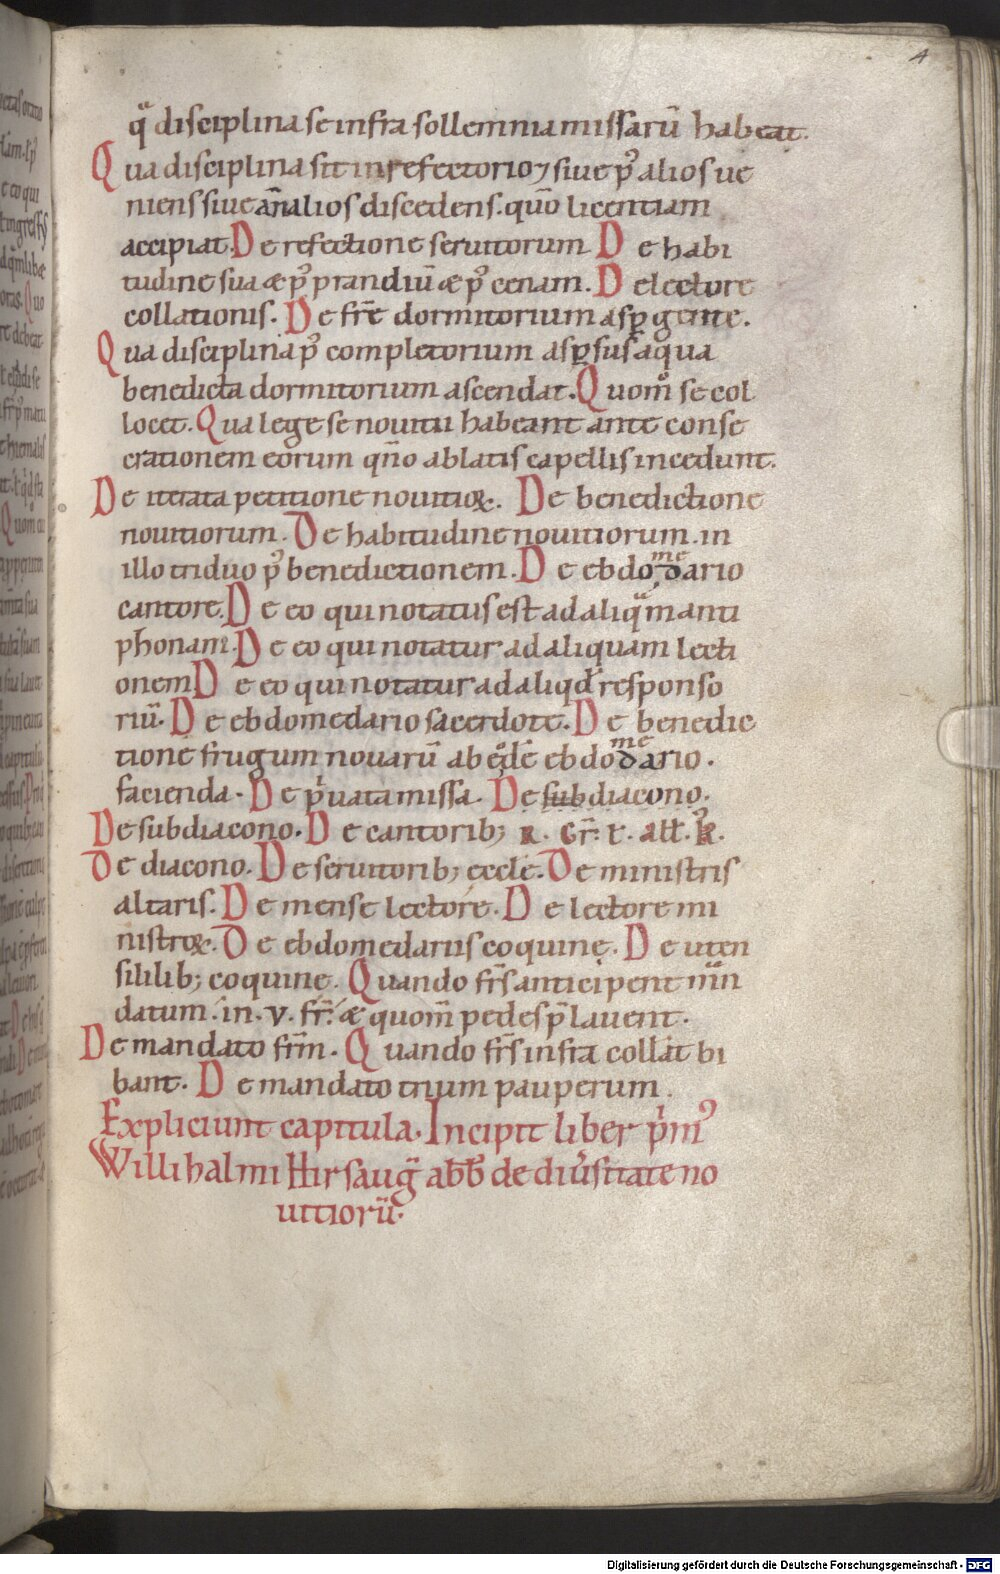 4
q̄ disciplina se infra sollemnia missarū habeat.
Qua disciplina sit in refectorio ⁊ siue p̓ alios ue
niens siue an̄ alios discedens. quō licentiam
accipiat. De refectione seruitorum De habi
tudine sua & p̓ prandiū & p̓ cenam. De lectore
collationis. De fr̄e dormitorium asꝑgente.
Qua disciplina p̓ completorium asꝑsus aqua
benedicta dormitorium ascendat. Quom̊ se col
locet. Qua lege se nouitii habeant ante conse
crationem eorum qn̄o ablatis capellis incedunt.
De iterata petitione nouitioꝝ. De benedictione
nouitiorum. De habitudine nouitiorum. in
illo triduo p̓ benedictionem. De ebdomedario
cantore. De eo qui notatus est ad aliquam anti
phonam. De eo qui notatur ad aliquam lecti
onem De eo qui notatur ad aliqd̄ responso
riū. De ebdomedario sacerdote. De benedic
tione frugum nouarū ab eod̄e ebdomedario.
facienda. De p̓uata missa. De subdiacono.
De subdiacono. De cantorib;
De diacono. De seruitorib; eccłę. De ministris
altaris. De mense lectore. De lectore mi
nistroꝝ. De ebdomedariis coquinę. De uten
silib; coquinę. Quando fr̄s anticipent man
datum. in. v. fr̄. & quom̄ pedes p̄lauent.
De mandato fr̄m. Quando fr̄s infra collat̄ bi
bant. De mandato trium pauperum.
Expliciunt capitula. Incipit liber p̓m᷒
Willihalmi Hirsaug̅ abb̄ de diu̓sitate no
uitiorū.
Digitalisierung gefördert durch die Deutsche Forschungsgemeinschaft - DFG